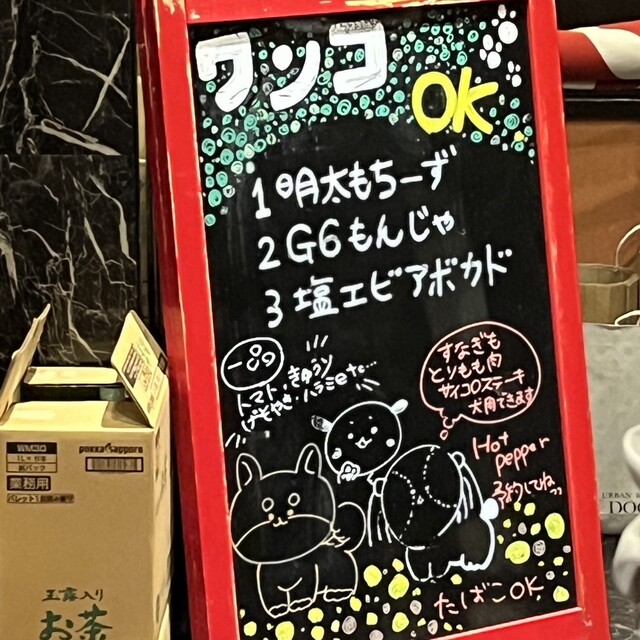 ワンコ
OK
1 明太もちーず
2 G6もんじゃ
3 塩エビアボカド
一品
トマト、きゅうり
げそやき、ハラミetc...
すなぎも
とりもも肉
サイコロステーキ
犬用できます
Hot
pepper
予約してねっ
たばこOK
WM30
1L×6本
紙パック
業務用
pokka sapporo
玉露入り
お茶
URBAN
DOG